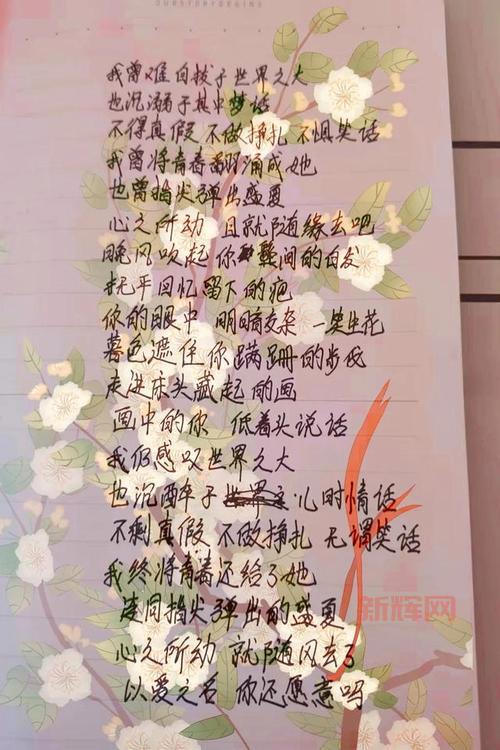 OUR STORY BEGINS
我曾难自拔于世界之大
也沉溺于其中梦话
不得真假 不做挣扎 不惧笑话
我曾将青春翻涌成她
也曾指尖弹出盛夏
心之所动 且就随缘去吧
晚风吹起你鬓间的白发
抚平回忆留下的疤
你的眼中 明暗交杂 一笑生花
暮色遮住你蹒跚的步伐
走进床头藏起的画
画中的你 低着头说话
我仍感叹世界之大
也沉醉于儿时情话
不剩真假 不做挣扎 无谓笑话
我终将青春还给了她
连同指尖弹出的盛夏
心之所动 就随风去了
以爱之名 你还愿意吗
新辉网